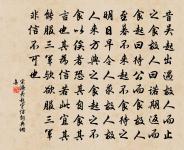 昔吳起出遇故人而止
之食故人曰諾期返而
食起曰待公而食故人
至暮不來起不食待之
明日早令人求故人故
人來方與之食起之不
食以俟者恐其自食其
言也其為信若此宜其
能服三軍歟欲服三軍
非信不可也
宋濂吳起守信